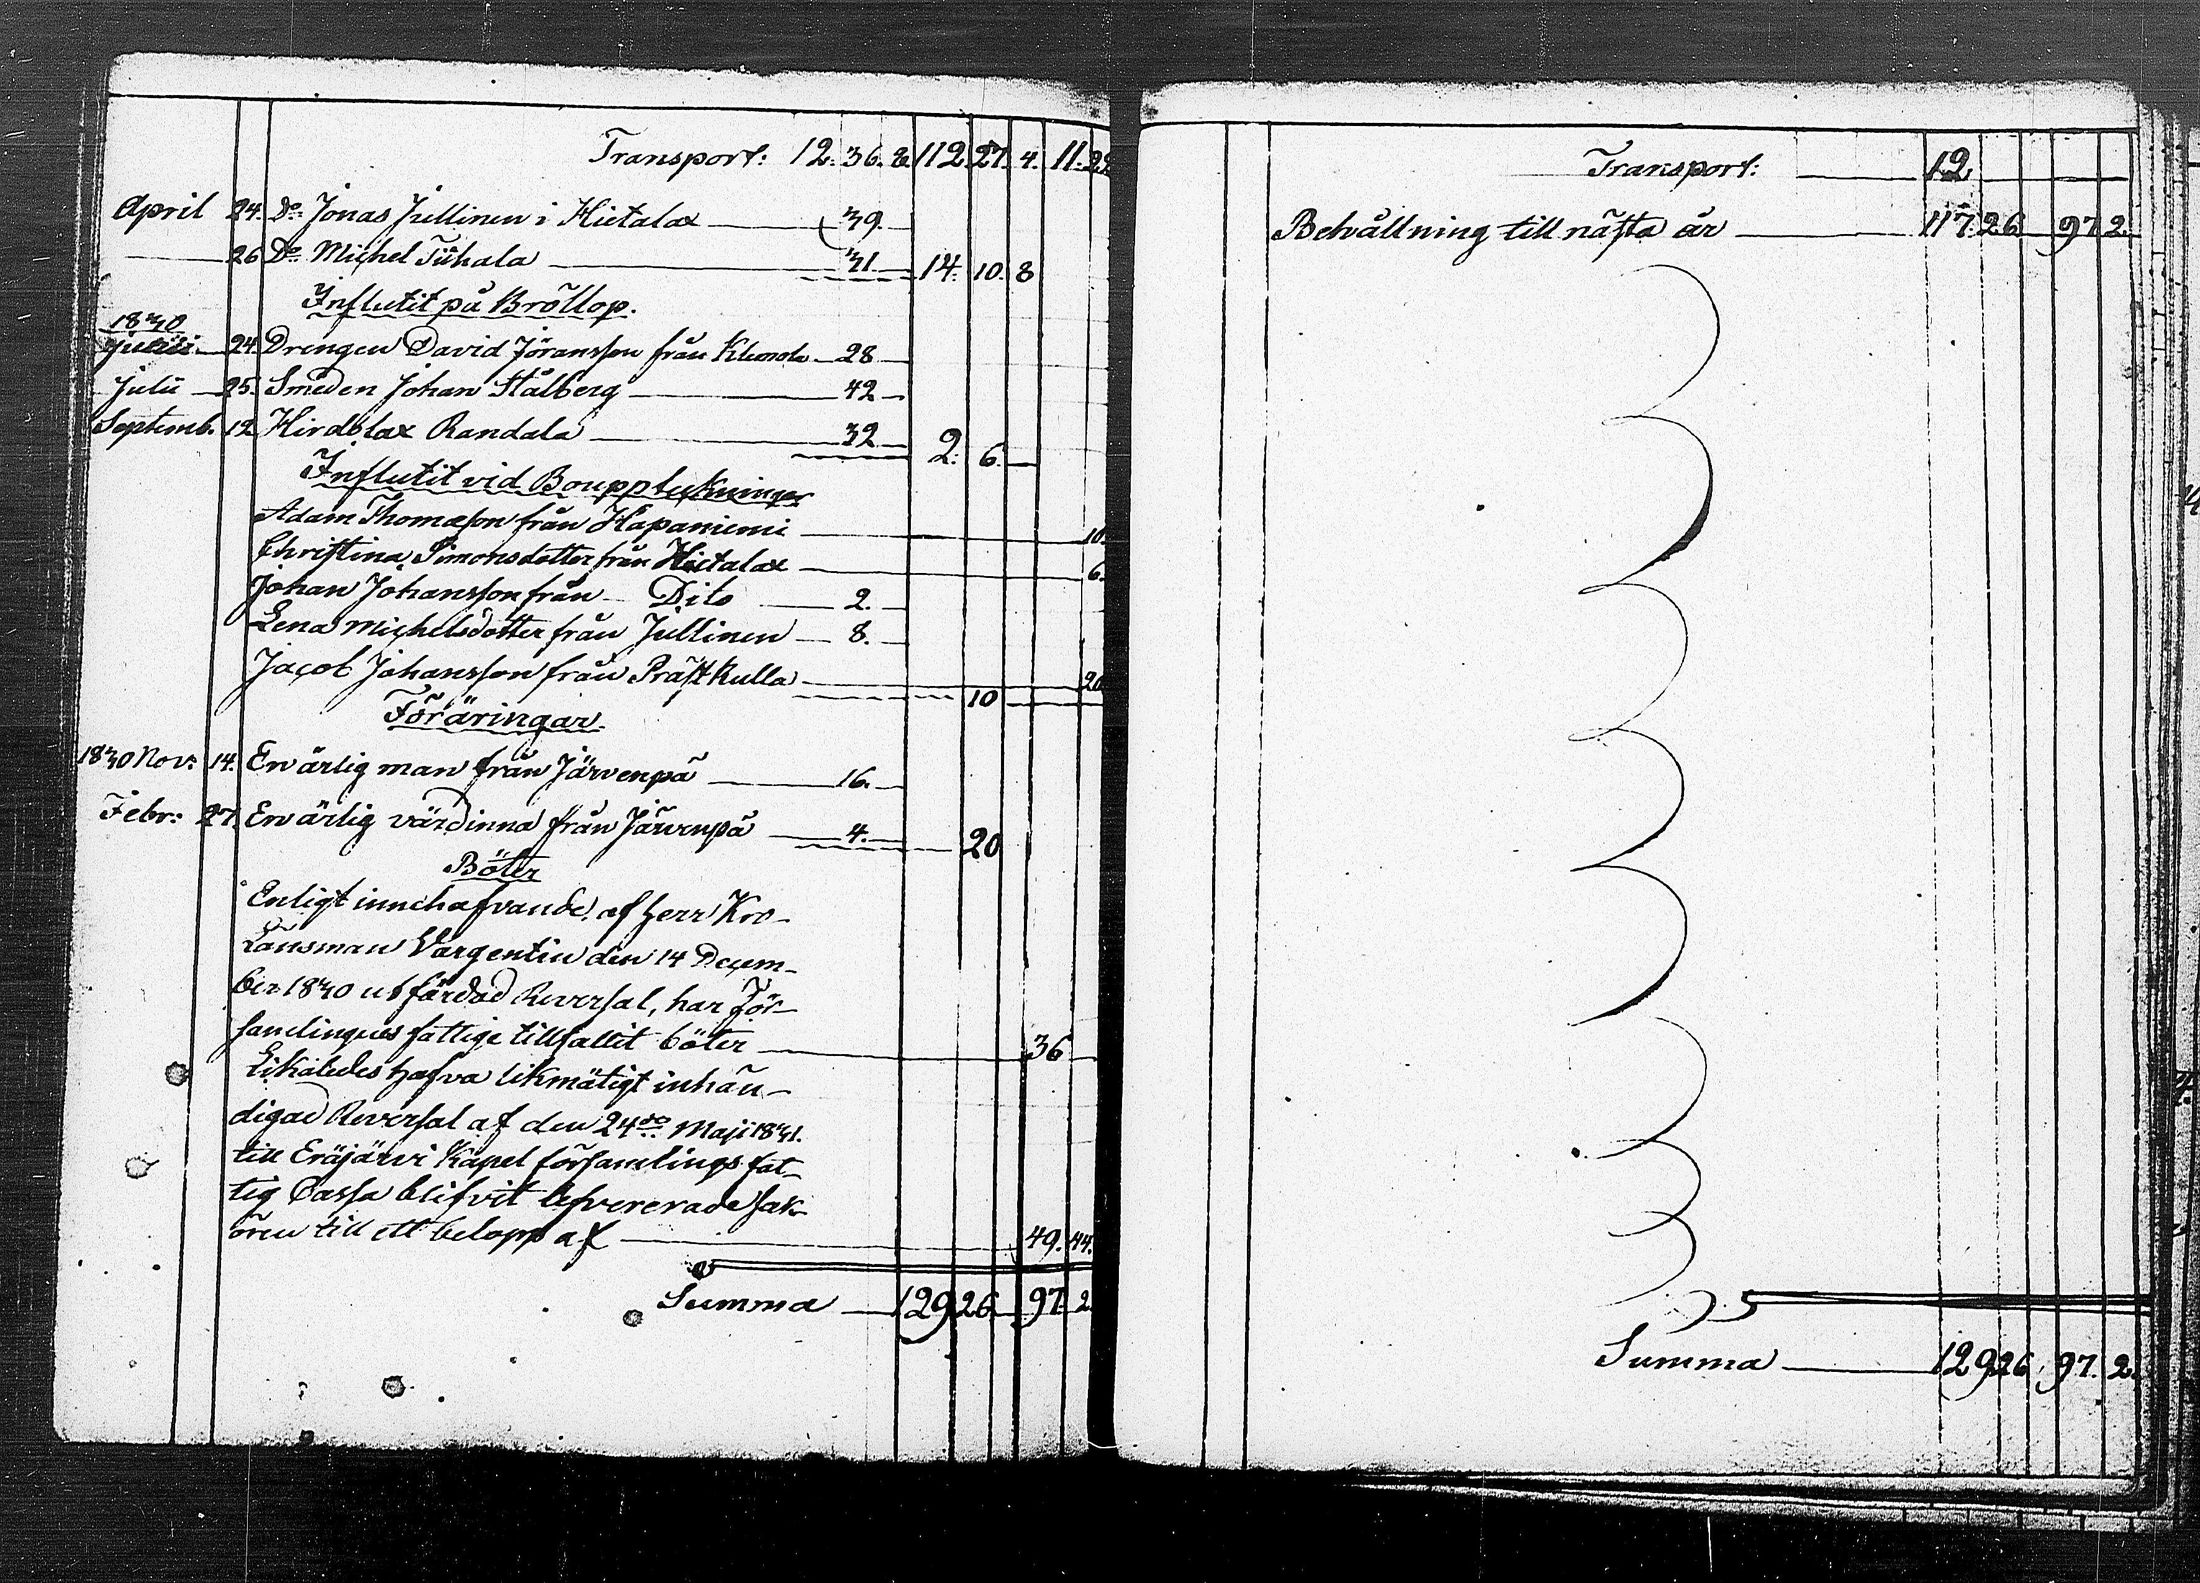 Transport: 12. 36. 8. 112. 27. 4. 11. 22
April 24. Do Jonas Jullinen i Hietalax 39.
26 Do Michel Tuhala 31 14. 10. 8
Influtit på Bröllop.
1830
Junii 24. Drengen David Jöransson från 28
Julii 25. Smeden Johan Stålberg 42
Septemb. 12 Hirdolax Randala 32 2. 6.
Influtit vid Bouppteckningar
Adam Thomasson från Hapaniemi 10.
Christina Simonsdotter från Hietalax 6.
Johan Johansson från Dito 2.
Lena Michelsdotter från Jullinen 8.
Jacob Johansson från Prästkulla 10 20
Föräringar.
1830 Nov: 14. En ärlig man från Järvenpä 16.
Febr: 27. En ärlig värdinna från Järvenpä 4. 20
Böter
Enligt innehafvande, af Herr Kro-
Länsman Vargentin den 14 Decem-
ber 1830 utfärdad Reversal, har För-
samlingens fattige tillfallit böter 36
Likaledes hafva likmätigt inhän-
digad Reversal af den 24de Maji 1831.
till Eräjärvi Kapel församlings fat-
tig Cassa blifvit lefvererade sak-
ören till ett belopp af 49. 44.
Summa 129 26. 97. 2.
Transport: 12
Behållning till nästa år 117. 26. 97 2.
Summa 129 26 97. 2.